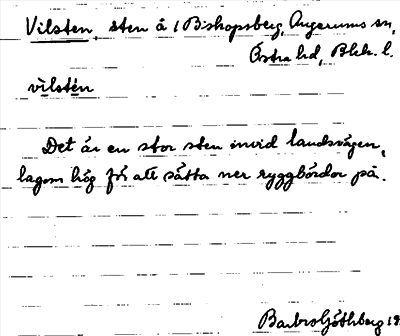 Vilsten, sten å 1 Biskopsberg, Augerums sn,
Östra hd, Blek. l.
vìlstén
Det är en stor sten invid landsvägen,
lagom hög för att sätta ner ryggbördor på.
Barbro Göthberg 19